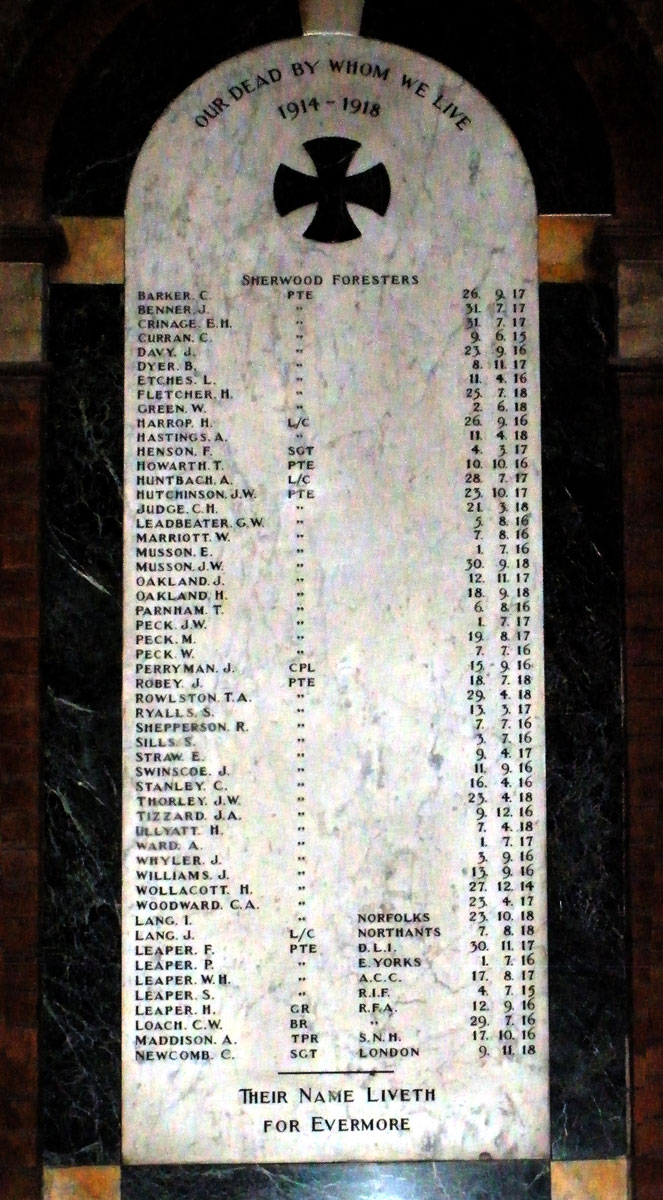 OUR DEAD BY WHOM WE LIVE
1914 - 1918
SHERWOOD FORESTERS
BARKER. C. PTE 26. 9. 17
BENNER. J. " 31. 7. 17
CRINAGE. E.H. " 31. 7. 17
CURRAN. C. " 9. 6. 15
DAVY. J. " 23. 9. 16
DYER. B. " 8. 11. 17
ETCHES. L. " 11. 4. 16
FLETCHER. H. " 25. 7. 18
GREEN. W. " 2. 6. 18
HARROP. H. L/C 26. 9. 16
HASTINGS. A. " 11. 4. 18
HENSON. F. SGT 4. 3. 17
HOWARTH. T. PTE 10. 10. 16
HUNTBACH. A. L/C 28. 7. 17
HUTCHINSON. J.W. PTE 23. 10. 17
JUDGE. C.H. " 21. 3. 18
LEADBEATER. G.W. " 5. 8. 16
MARRIOTT. W. " 7. 8. 16
MUSSON. E. " 1. 7. 16
MUSSON. J.W. " 30. 9. 18
OAKLAND. J. " 12. 11. 17
OAKLAND. H. " 18. 9. 18
PARNHAM. T. " 6. 8. 16
PECK. J.W. " 1. 7. 17
PECK. M. " 19. 8. 17
PECK. W. " 7. 7. 16
PERRYMAN. J. CPL 15. 9. 16
ROBEY. J. PTE 18. 7. 18
ROWLSTON. T.A. " 29. 4. 18
RYALLS. S. " 13. 3. 17
SHEPPERSON. R. " 7. 7. 16
SILLS. S. " 3. 7. 16
STRAW. E. " 9. 4. 17
SWINSCOE. J. " 11. 9. 16
STANLEY. C. " 16. 4. 16
THORLEY. J.W. " 23. 4. 18
TIZZARD. J.A. " 9. 12. 16
ULLYATT. H. " 7. 4. 18
WARD. A. " 1. 7. 17
WHYLER. J. " 3. 9. 16
WILLIAMS. J. " 13. 9. 16
WOLLACOTT. H. " 27. 12. 14
WOODWARD. C.A. " 23. 4. 17
LANG. I. " NORFOLKS 23. 10. 18
LANG. J. L/C NORTHANTS 7. 8. 18
LEAPER. F. PTE D.L.I. 30. 11. 17
LEAPER. P. " E.YORKS 1. 7. 16
LEAPER. W.H. " A.C.C. 17. 8. 17
LEAPER. S. " R.I.F. 4. 7. 15
LEAPER. H. GR R.F.A. 12. 9. 16
LOACH. C.W. BR " 29. 7. 16
MADDISON. A. TPR S.N.H. 17. 10. 16
NEWCOMB. C. SGT LONDON 9. 11. 18
THEIR NAME LIVETH
FOR EVERMORE